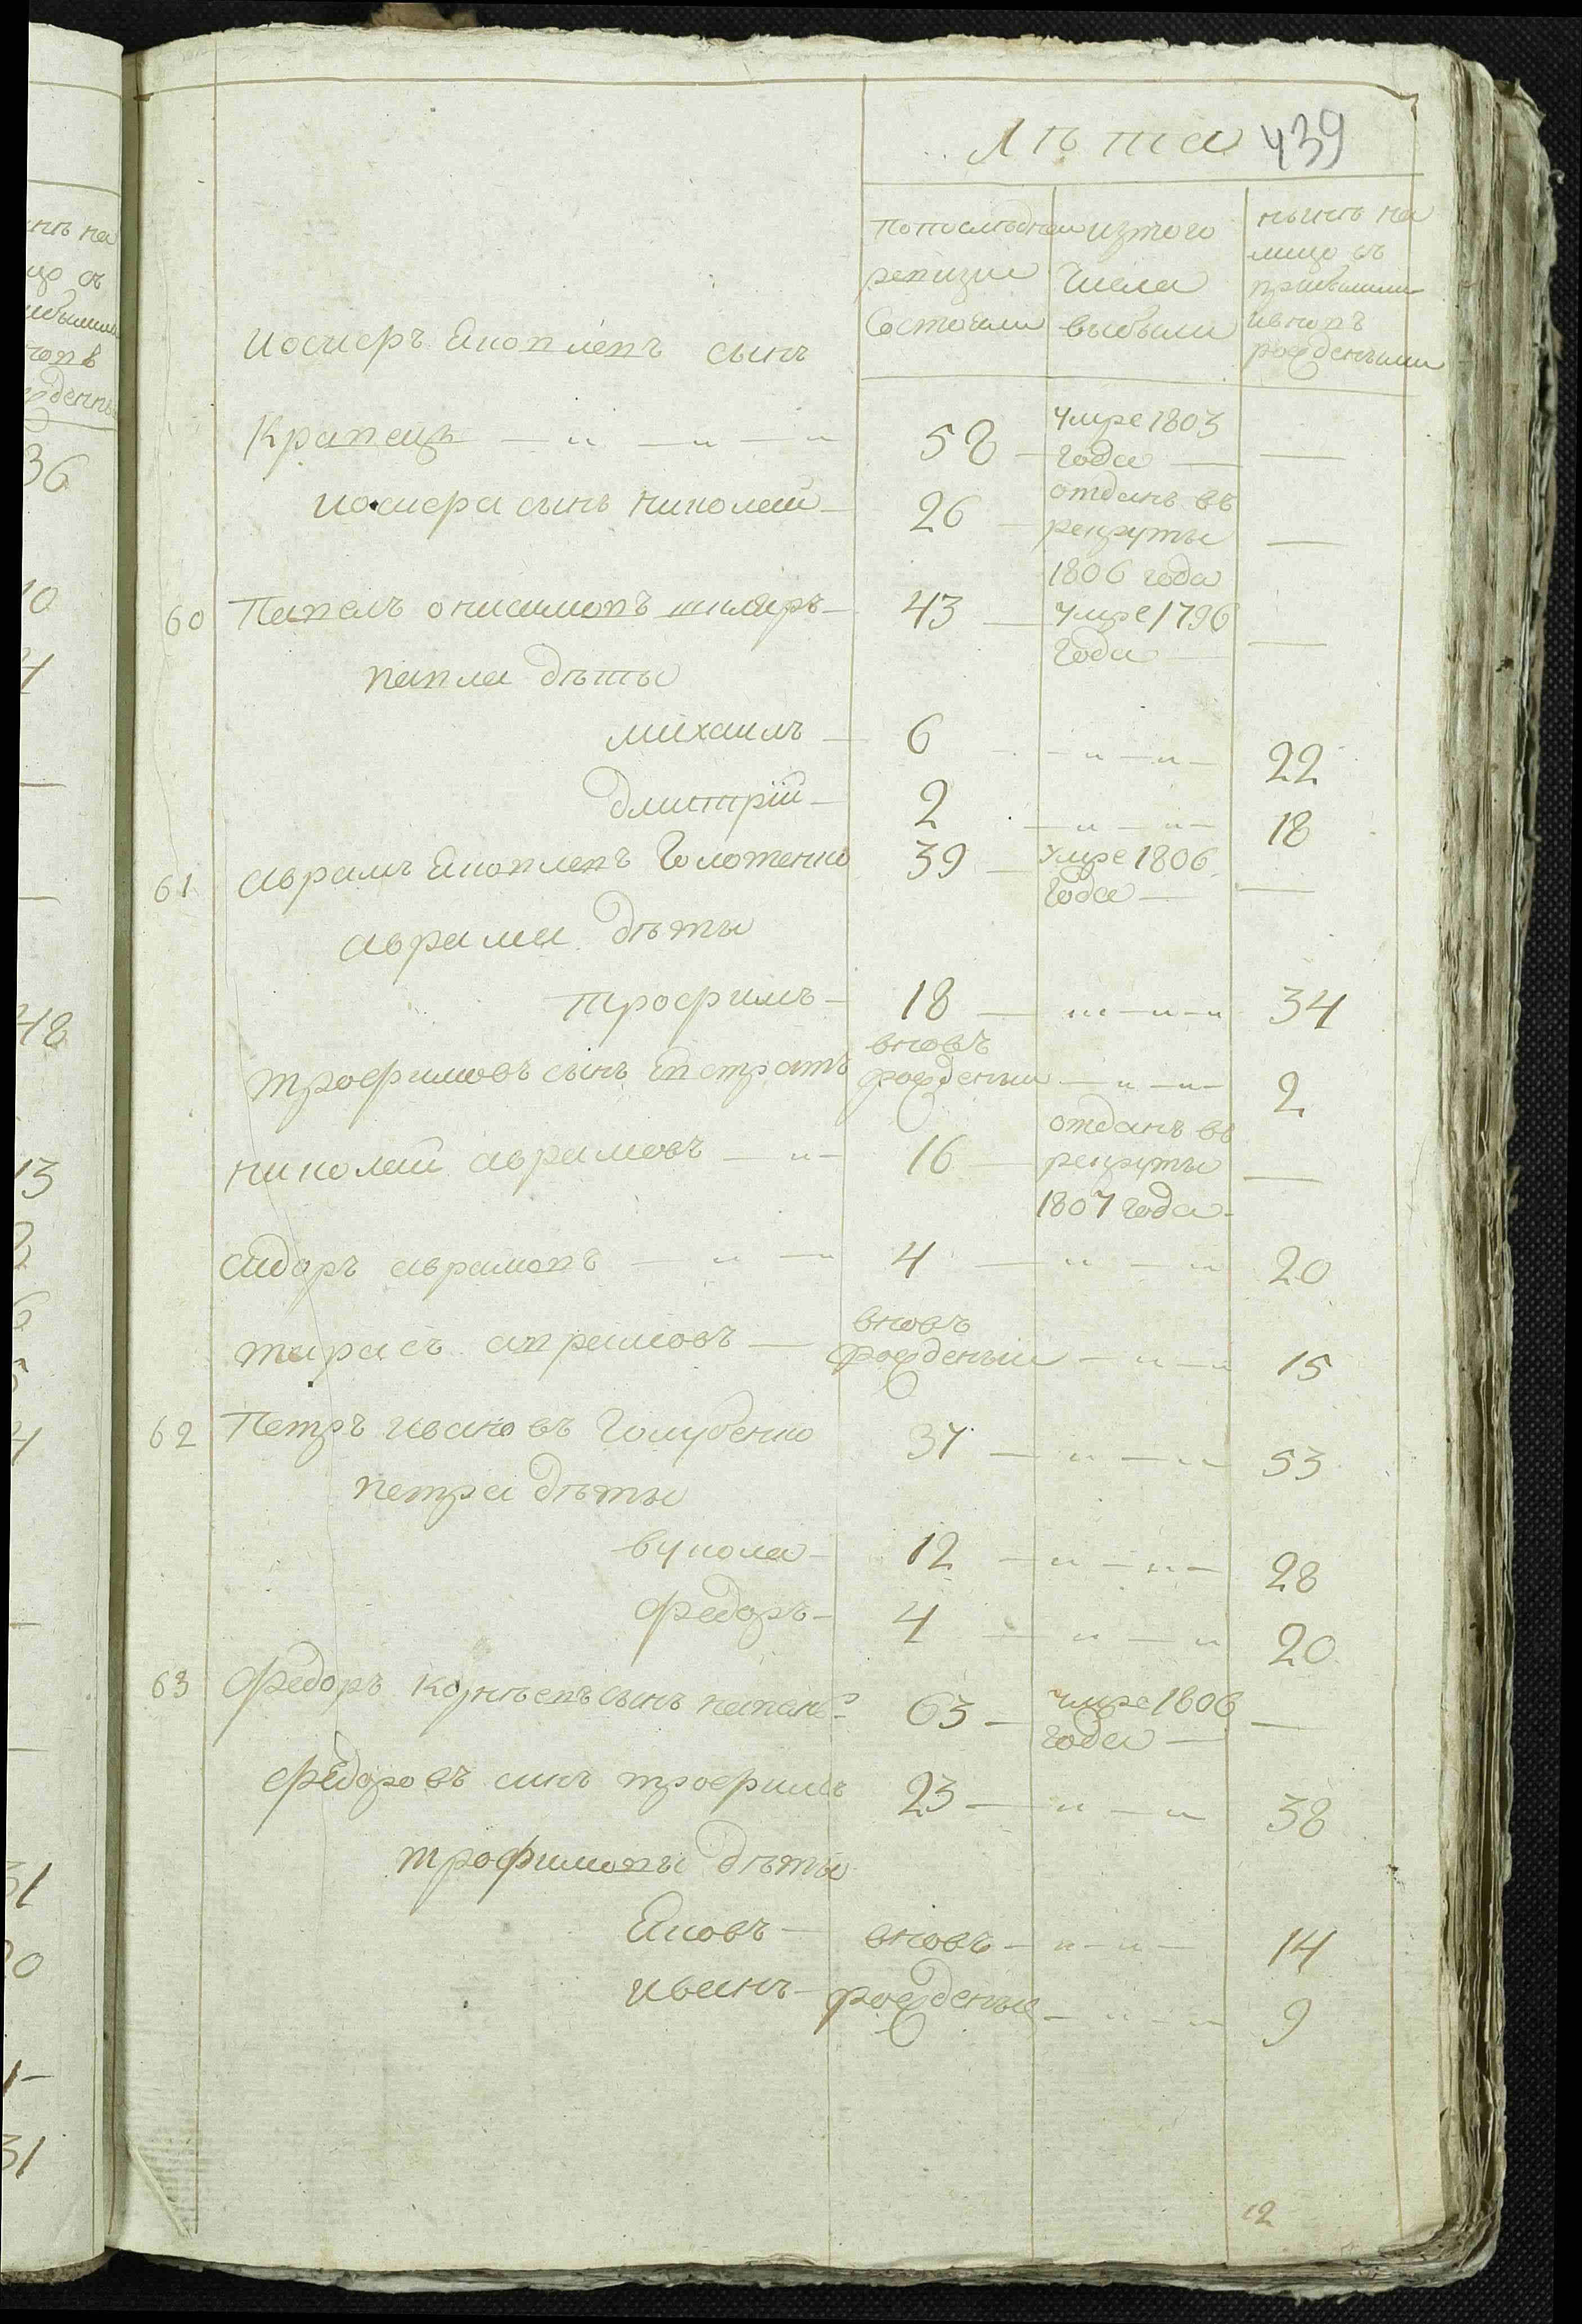 Лѣта 439
по последней ревизии состояли
изтого числа выбыли
нынѣ на лицо съ прибылыми ивновь рожденными
иосифъ Яковлевъ сынъ
Кравецъ 58 умре 1803 года
иосифа сынъ николай 26 отданъ въ рекруты 1806 года
60 Павелъ онисимовъ шкляръ 43 умре 1796 года
павла дѣты
михаилъ 6 22
дмитрій 2 18
61 аврамъ Яковлевъ Голотенко 39 умре 1806 года
аврама дѣты
трофимъ 18 34
трофимовъ сынъ Евстратъ вновь рожденный 2
николай аврамовъ 16 отданъ въ рекруты 1807 года
сидоръ аврамовъ 4 20
тарасъ аврамовъ вновь рожденный 15
62 Петръ Ивановъ Голубенко 37 53
петра дѣты
вукола 12 28
федоръ 4 20
63 Федоръ корнѣевъ сынъ 63 умре 1806 года
федоровъ синъ трофимъ 23 38
трофимовы дѣты
Яковъ вновь 14
иванъ рожденые 9
12